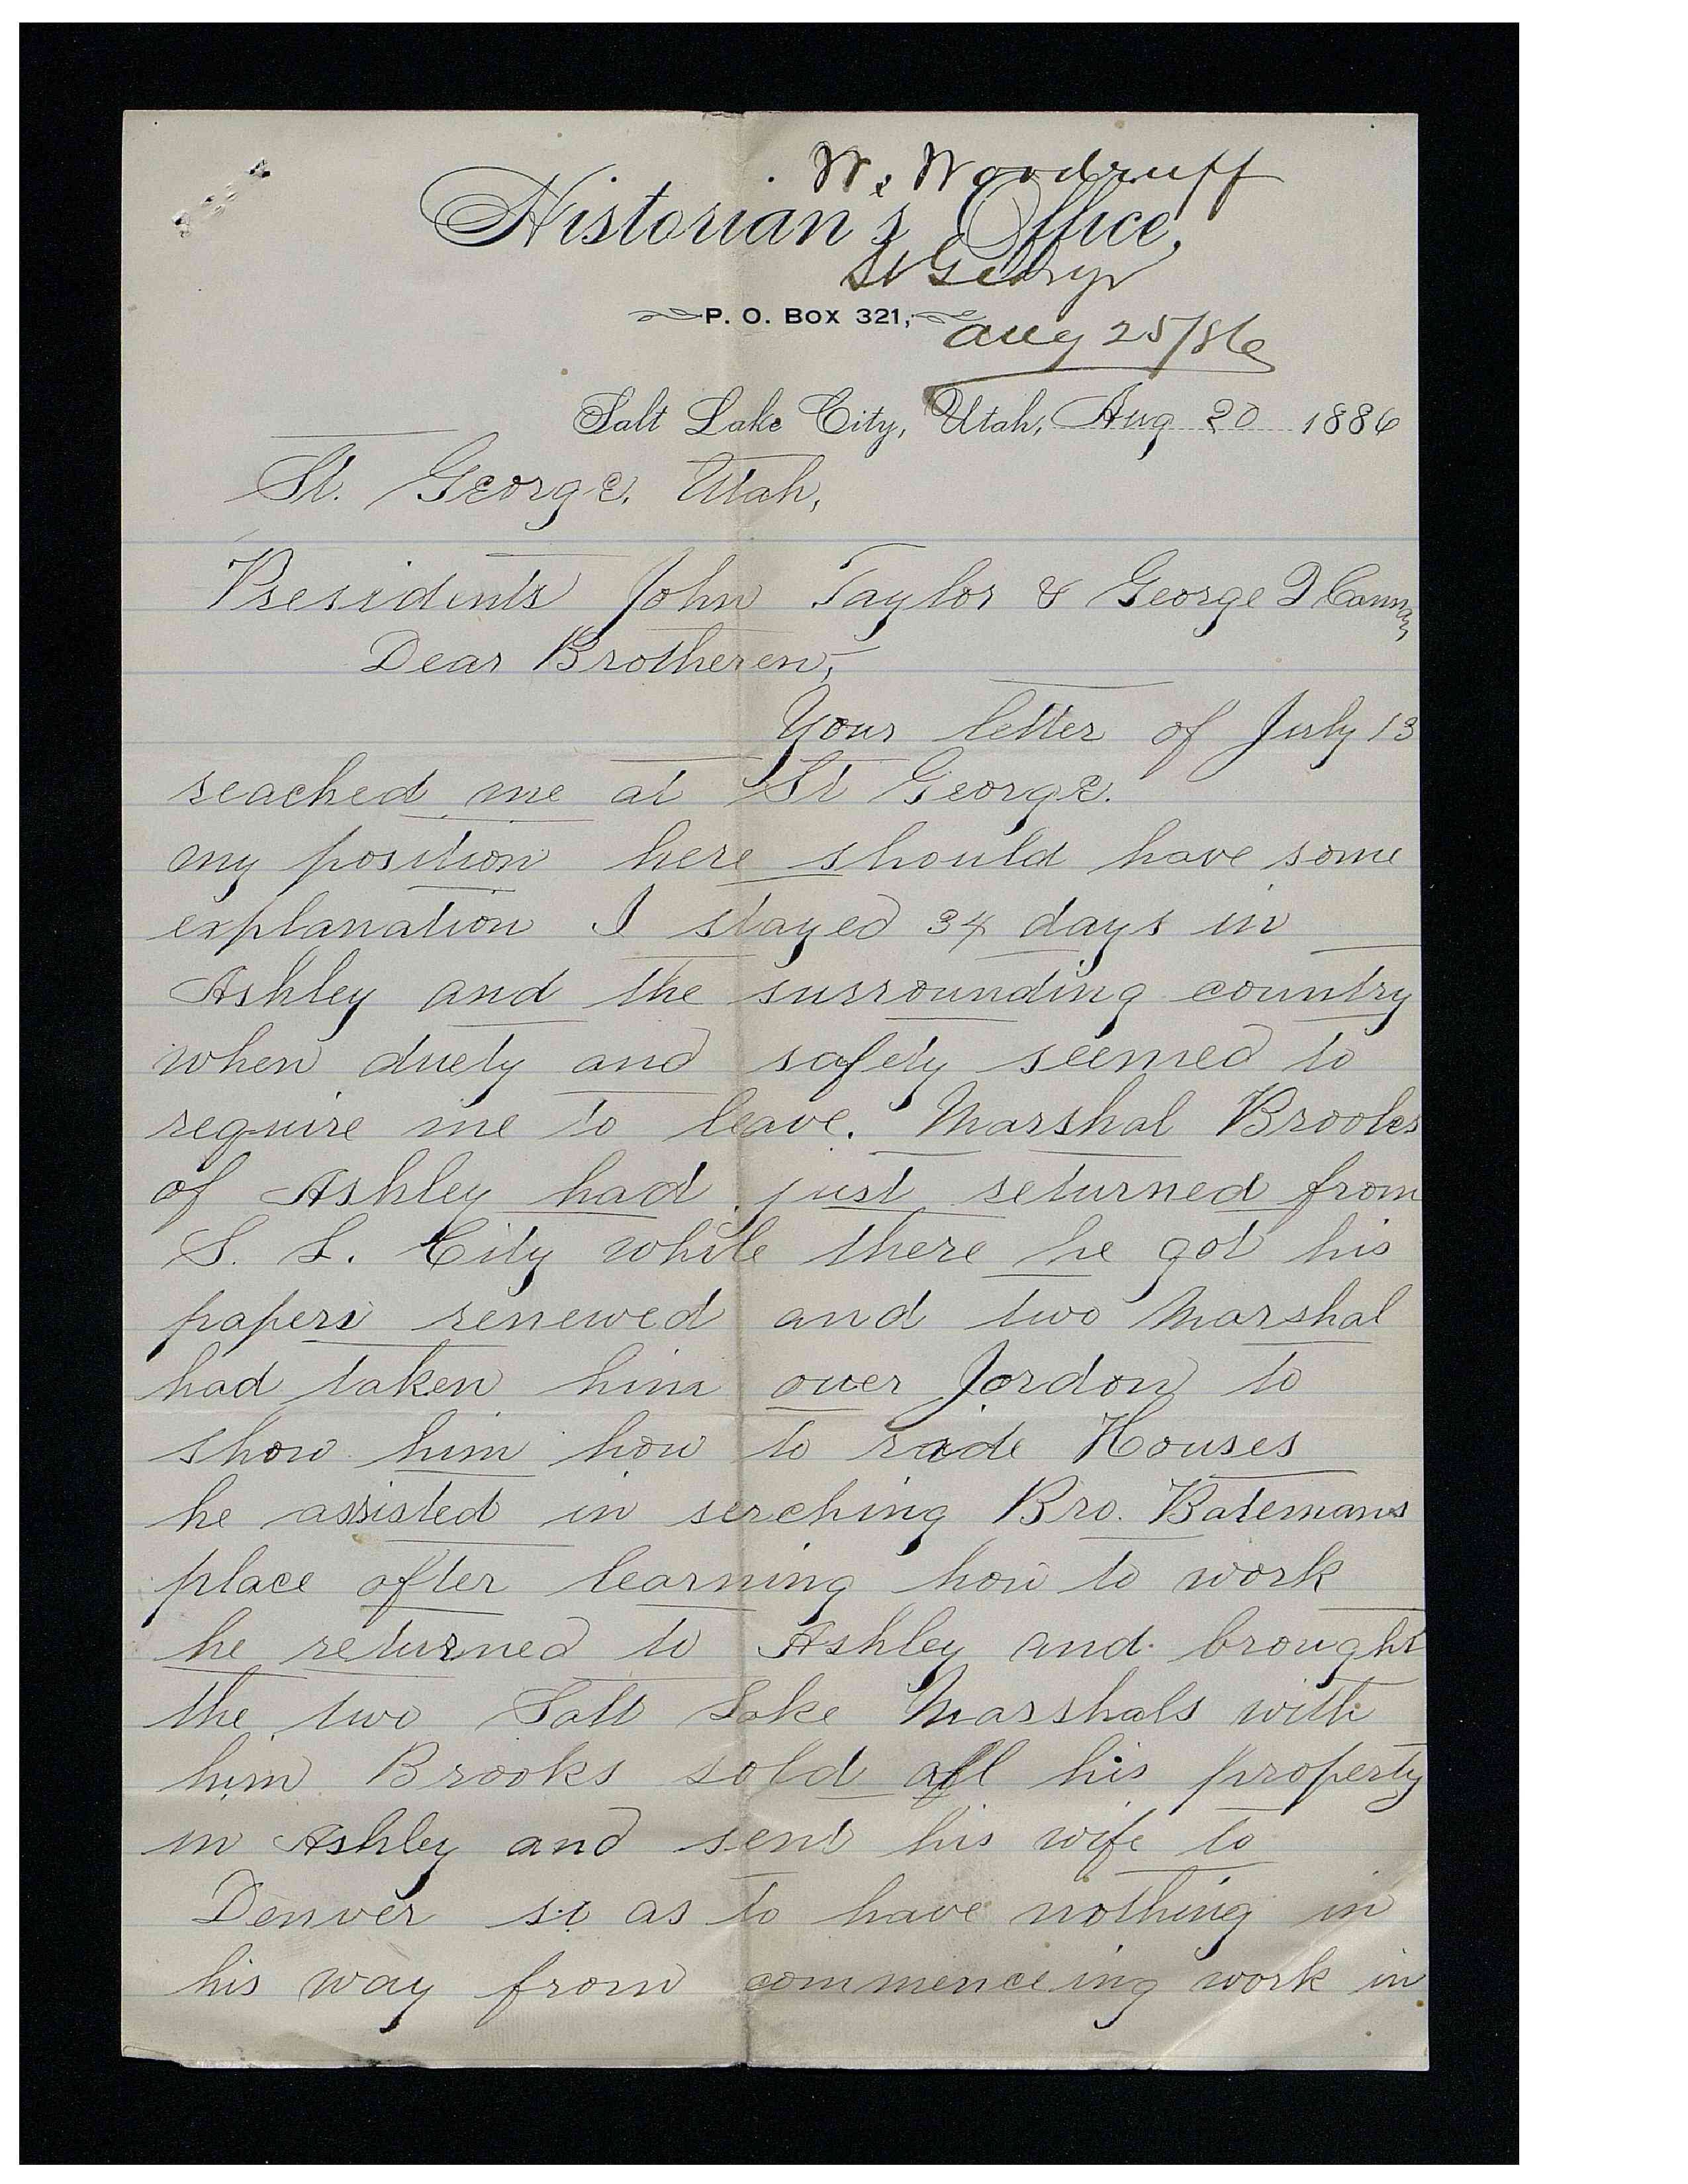 W. Woodruff
Historian's Office,
St George
P. O. Box 321,
Aug 25/86
Salt Lake City, Utah, Aug 20 1886
St. George, Utah,
Presidents John Taylor & George Q Cannon
Dear Brotheren,
Your letter of July 13
reached me at St George.
my position here should have some
explanation I stayed 34 days in
Ashley and the surrounding country
when duety and safety seemed to
require me to leave. Marshal Brooks
of Ashley had just returned from
S. L. City while there he got his
papers renewed and two Marshal
had taken him over Jordon to
show him how to raide Houses
he assisted in serching Bro. Batemans
place after learning how to work
he returned to Ashley and brought
the two Salt Lake Marshals with
him Brooks sold all his property
in Ashley and sent his wife to
Denver so as to have nothing in
his way from commenceing work in